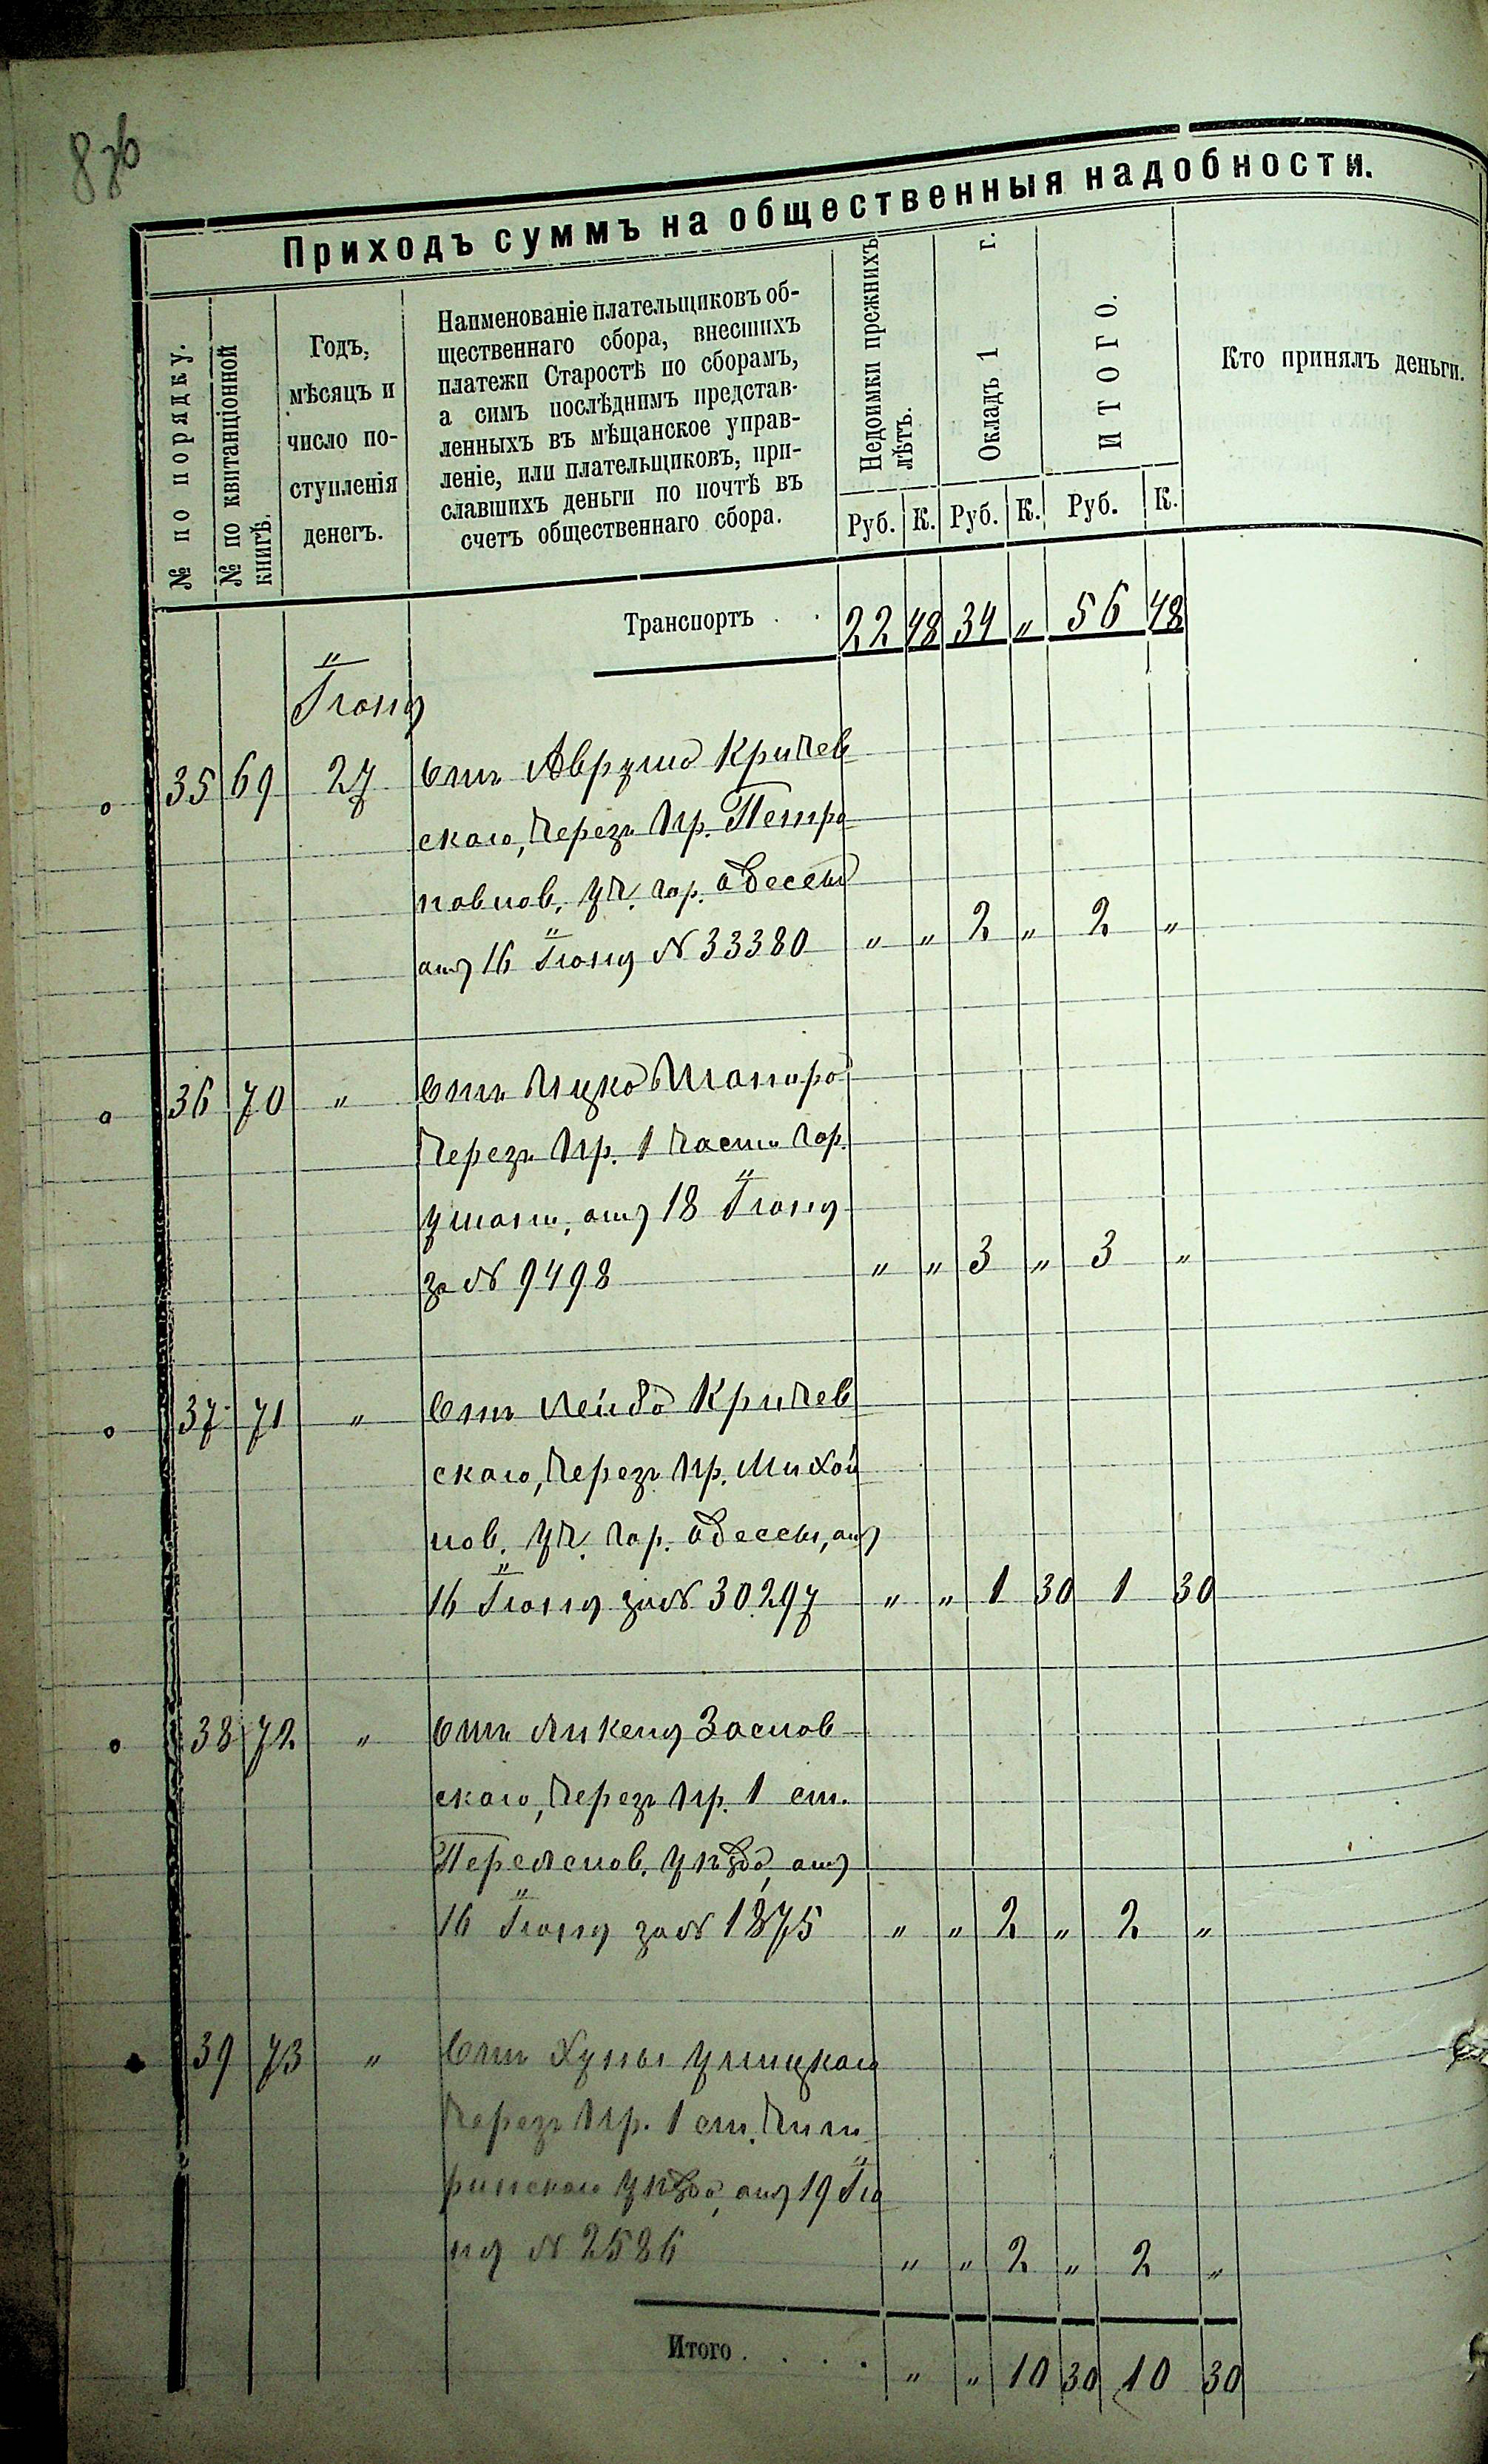 Приходъ суммъ на общественныя надобности.
№ по порядку.
№ по квитанціонной
книгѣ.
Годъ,
мѣсяцъ и
число по-
ступленія
денегъ.
Наименованіе плательщиковъ об-
щественнаго сбора, внесшихъ
платежи Старостѣ по сборамъ,
а симъ послѣднимъ представ-
ленныхъ въ мѣщанское управ-
леніе, или плательщиковъ, при-
славшихъ деньги по почтѣ въ
счетъ общественнаго сбора.
Недоимки прежнихъ
лѣтъ.
Окладъ 1 г.
ИТОГО.
Кто принялъ деньги.
Руб. К. Руб. К. Руб. К.
Транспортъ . . 22 48 34 " 56 48
Іюня
35 69 27 Отъ Аврума Кричев
скаго, через Пр. Петро
павлов. уч. гор. Одессы
отъ 16 Іюня № 33380 " " 2 " 2 "
36 70 " Отъ Ицка Шапиро
Через Пр. 1 части гор.
Умани, отъ 18 Іюня
за № 9498 " " 3 " 3 "
37 71 " Отъ Лейба Кричев
скаго, через Пр. Михай
лов. уч. гор. Одессы, отъ
16 Іюня за № 30297 " " 1 30 1 30
38 72 " Отъ Янкеля Заслав
скаго, через Пр. 1 ст.
Переяслов. уѣзда, отъ
16 Іюня за № 1875 " " 2 " 2 "
39 73 " Отъ Хуны
Через Пр. 1 ст. Чиги
ринскаго уѣзда, отъ 19 Ію
ня № 2586 " " 2 " 2 "
Итого . . . . " " 10 30 10 30